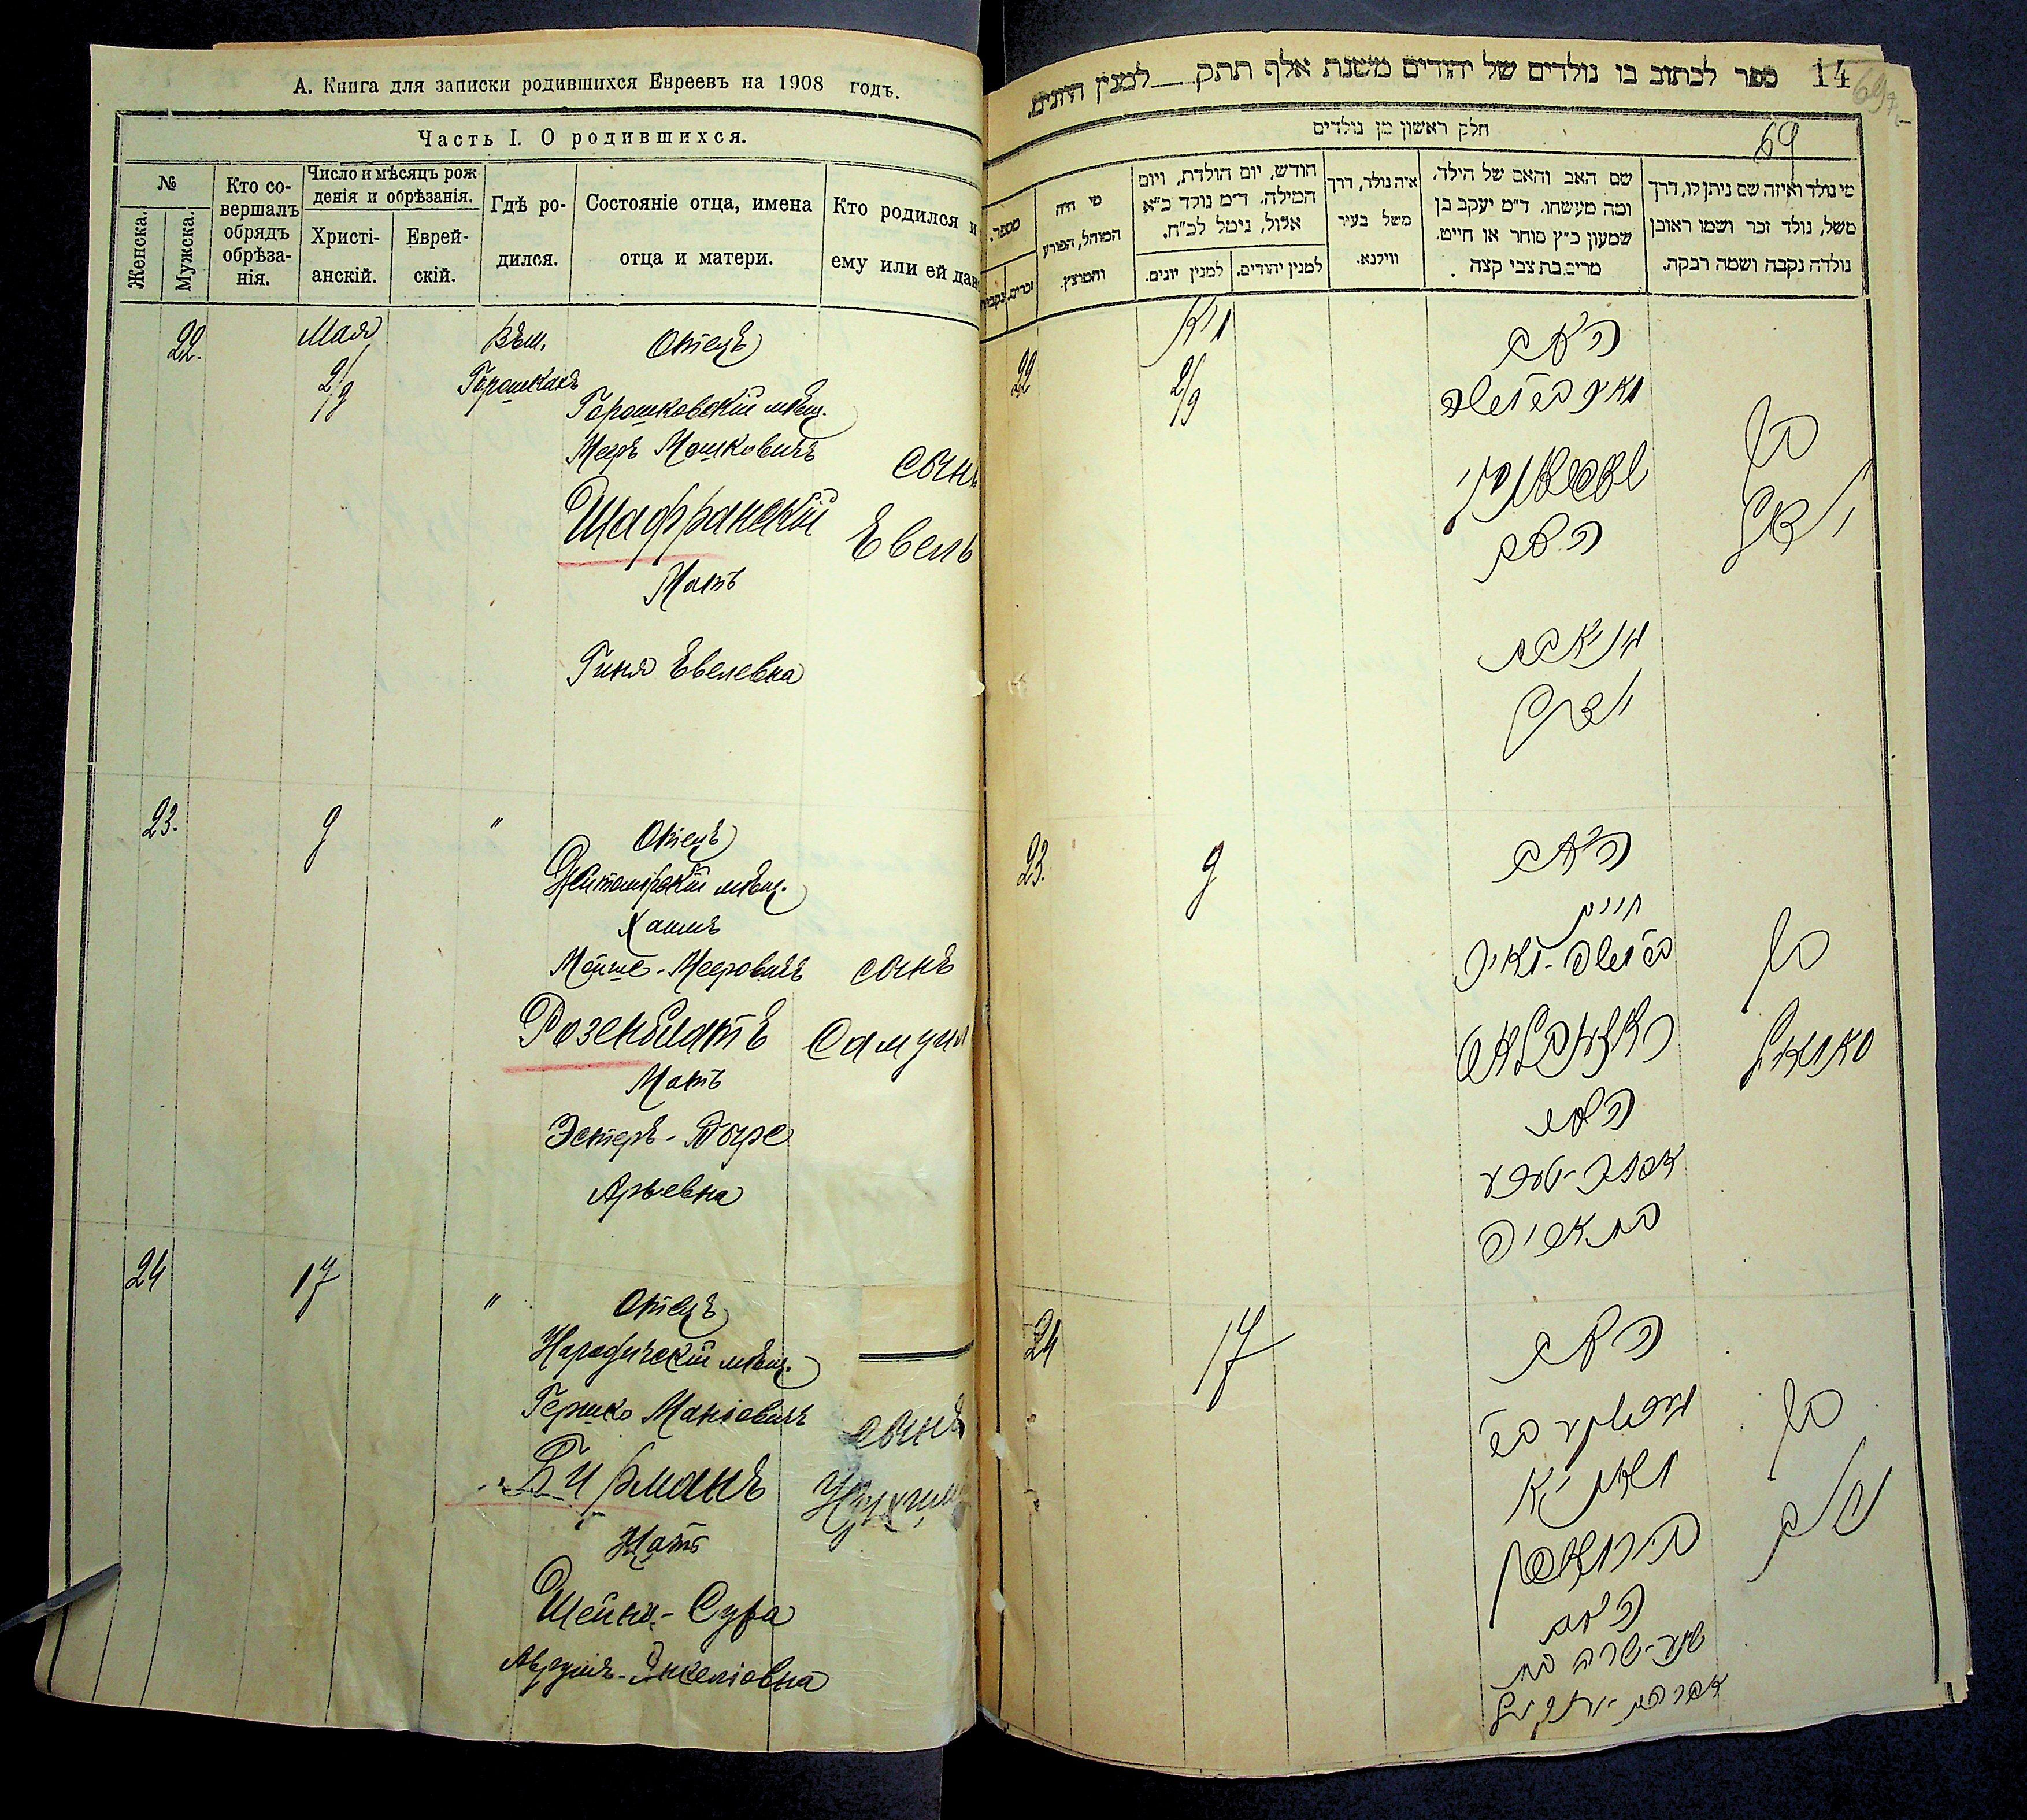 А. Книга для записки родившихся Евреевъ на 1908 годъ.
Часть I. О родившихся.
№
Женска.
Мужска.
Кто со-
вершалъ
обрядъ
обрѣза-
нія.
Число и мѣсяцъ рож
денія и обрѣзанія.
Христі-
анскій.
Еврей-
скій.
Гдѣ ро-
дился.
Состояніе отца, имена
отца и матери.
Кто родился и
ему или ей дан
22.
Мая
2/9
Въ м.
Горошкахъ
Отецъ
Горошковскій мѣщ.
Меръ Мошковичъ
Шафранскій
Мать
Гиня Евелевна
сынъ
Евель
23.
9
"
Отецъ
Житомірскій мѣщ.
Хаимъ
Мойше-Мееровичъ
Розенблатъ
Мать
Эстеръ-
Арьевна
сынъ
Самуил
24
17
"
Отецъ
Народичскій мѣщ.
Гершко Маніовичъ
Бирманъ
Мать
Шейня-Сура
Аврумъ-Янкеліовна
сынъ
14
ספר לכתוב בו נולדים של יהודים משנת אלף תתק למנין היונים.
69
חלק ראשון מן נולדים
מספר.
זכרים.
נקבות
מי היה
המוהל, הפורע
והמוצץ.
חודש, יום הולדת, ויום
המילה. ד״מ נולד כ״א
אלול, נימל לכ״ח.
למנין יונים.
למנין יהודים.
איה נולד, דרך
משל בעיר
ווילנא.
שם האב והאם של הילד,
ומה מעשהו. ד״מ יעקב בן
שמעון כ״ץ סוחר או חייט,
מרים בת צבי קצה
מי נולד ואיזה שם ניתן לו, דרך
משל, נולד זכר ושמו ראובן
נולדה נקבה ושמה רבקה.
22
מיא
2/9
האב
מאיר במשה
האם
בן
23.
9
האב
חיים
במשה-מאיר
ראזענבלאט
האם
בן
סאמואיל
24
17
האב
בן
בירמאן
האם
שיינע-שרה בת